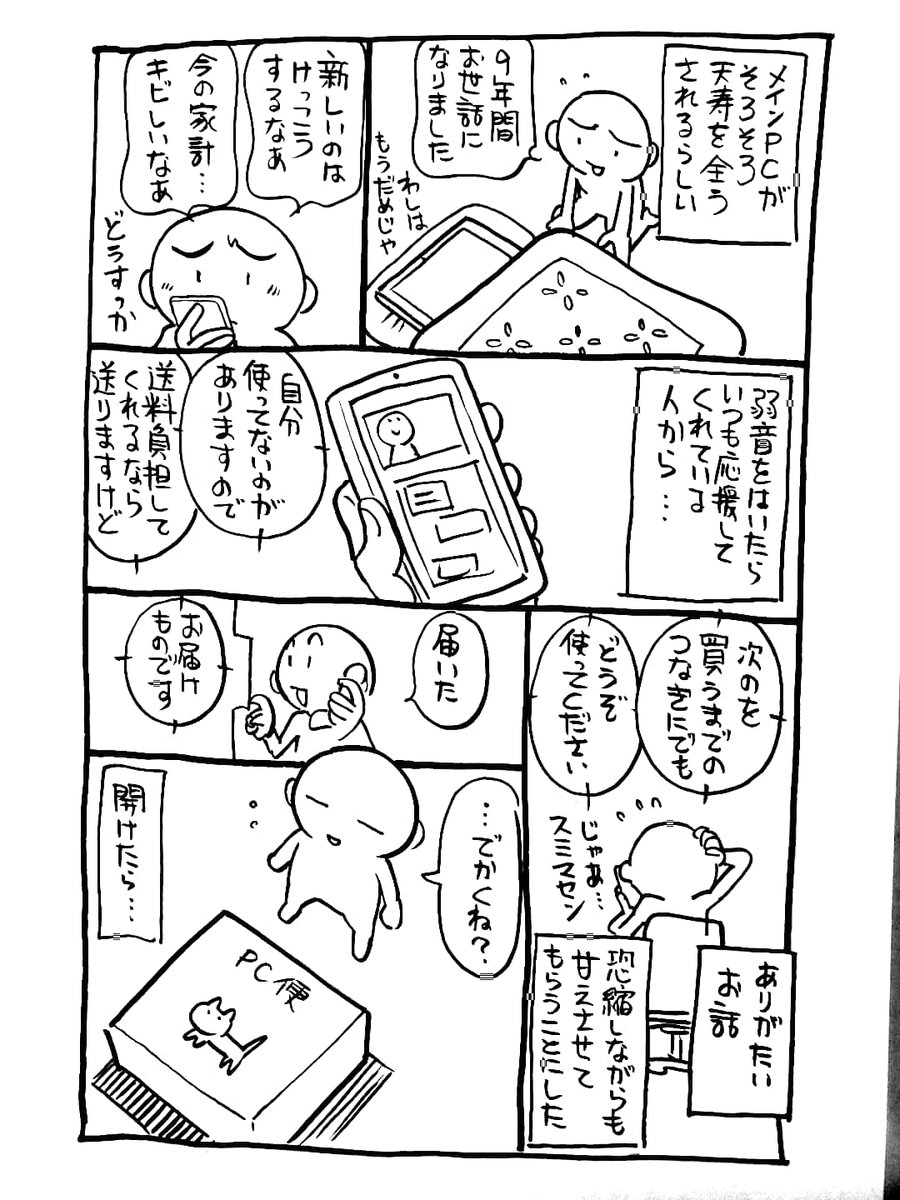 メインPCが
そろそろ
天寿を全う
されるらしい
9年間
お世話に
なりました
わしは
もうだめじゃ
新しいのは
けっこう
するなぁ
今の家計…
キビしいなあ
どうすっか
弱音をはいたら
いつも応援して
くれている
人から…
自分
使ってないのが
ありますので
送料負担して
くれるなら
送りますけど
次のを
買うまでの
つなぎにでも
どうぞ
使ってください
じゃあ…
スミマセン
ありがたい
お話
恐縮しながらも
甘えさせて
もらうことにした
届いた
お届け
ものです
…でかくね?
開けたら…
PC便